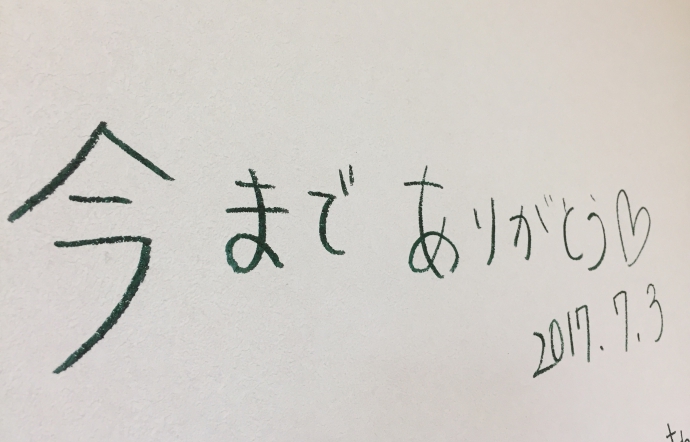 今まで ありがとう♡
2017.7.3